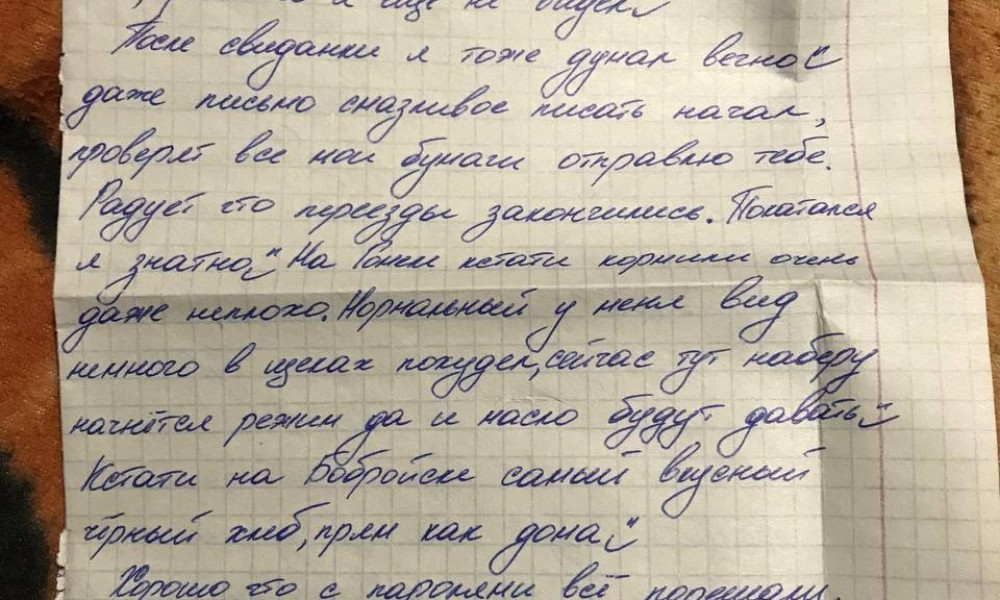 и ещё не видел
После свиданки я тоже думал вечно ӱ
даже письмо слазливое писать начал,
проверят все мои бумаги отправлю тебе.
Радует что переезды закончились. Покатался
я знатно ӱ На кстати кормили очень
даже неплохо. Нормальный у меня вид
немного в щеках похудел, сейчас тут наберу
начнётся режим да и масло будут давать ӱ
Кстати на Бобруйске самый вкусный
чёрный хлеб, прям как дома ӱ
Хорошо что с паролями всё порешали.